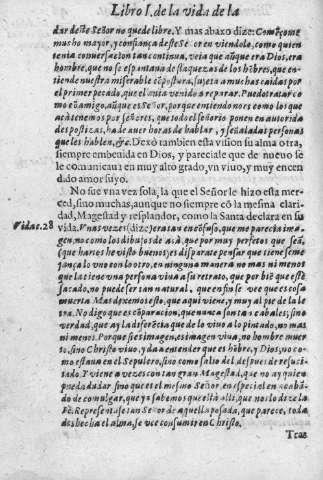 Libro I. de la vida de la
dar deste Señor no quede libre. Y mas abaxo dize: Començome
mucho mayor, y confiança deste Señor en viendolo, como quien
tenia conuersacion tan continua, veia que aũque era Dios, era
hombre, que no se espantaua de flaquezas de los hõbres, que en-
tiende nuestra miserable cõpostura, sujeta a muchas caidas por
el primer pecado, que el auia venido a reparar. Puedo tratar co
mo cõ amigo, aũque es Señor, porque entiendo no es como los que
acà tenemos por señores, que todo el señorio ponen en autorida
des postizas, ha de auer horas de hablar, y señaladas personas
que les hablen, &c. Dexò tambien esta vision su alma otra,
siempre embeuida en Dios, y pareciale que de nueuo se
le comunicaua en muy alto grado, vn viuo, y muy encen
dido amor suyo.
No fue vna vez sola, la que el Señor le hizo esta mer-
ced, sino muchas, aunque no siempre cõ la mesma clari-
dad, Magestad y resplandor, como la Santa declara en su
Vida c. 28
vida. Vnas vezes (dize) era tan en cõfuso, que me parecia ima-
gen, no como los dibujos de acà, que por muy perfetos que seã,
que hartos he visto buenos, es disparate pensar que tiene seme
jança lo vno con lo otro, en ninguna manera no mas ni menos
que la tiene vna persona viua a su retrato, que por biẽ que estè
sacado, no puede ser tan natural, que en fin se vee que es cosa
muerta. Mas dexemos esto, que aqui viene, y muy al pie de la le
tra. No digo que es cõparacion, que nunca son tan cabales; sino
verdad, que ay la diferẽcia que de lo viuo a lo pintado, no mas
ni menos. Porque si es imagen, es imagen viua, no hombre muer
to, sino Christo viuo, y da a entender que es hõbre, y Dios, no co-
mo estaua en el Sepulcro, sino como salio del, despues de resuci-
tado. Y viene a vezes con tan gran Magestad, que no ay quien
pueda dudar sino que es el mesmo Señor, en especial en acabã-
do de comulgar, que ya sabemos que està alli, que nos lo dize la
Fè. Representase tan Señor de aquella posada, que parece, toda
deshecha el alma, se vee consumir en Christo.
Tras